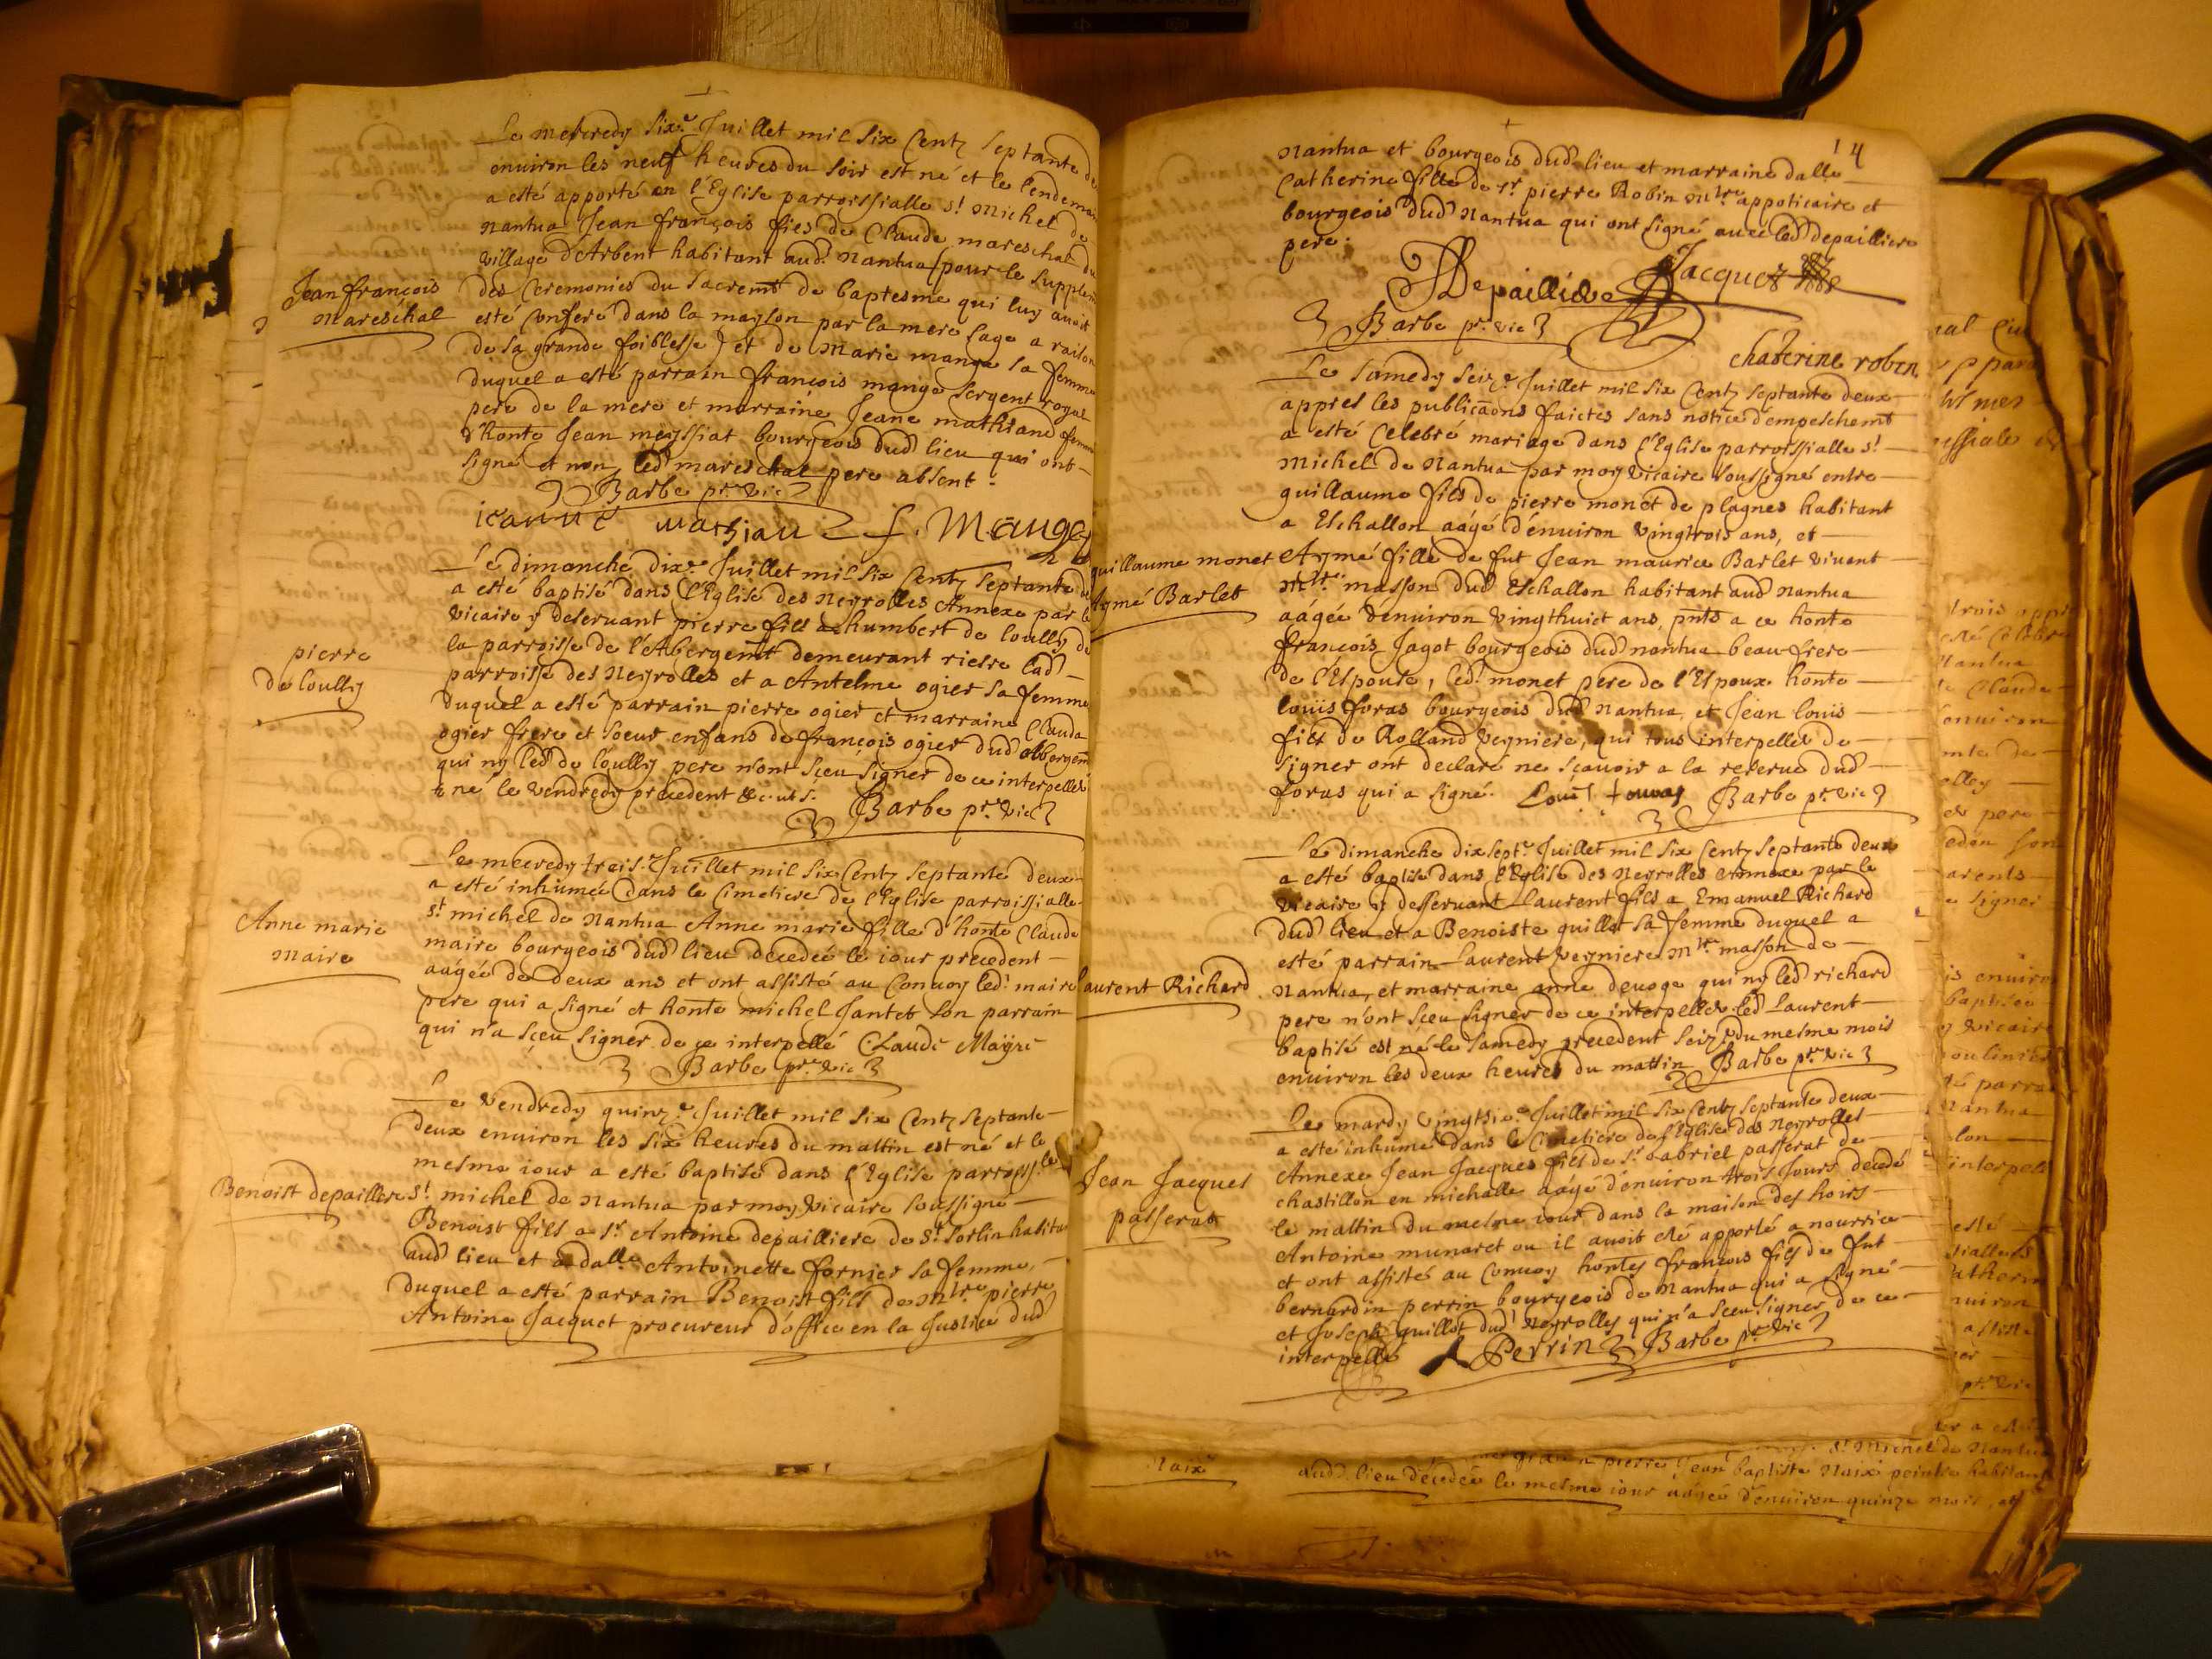 Le mecredy six.e Juillet mil six Centz septante de
environ les neuf heures du soir est né et le lendemain
a esté apporté en l'Eglise parroissialle st Michel de
Nantua Jean françois fils de Claude mareschal du
village d'Arbent habitant aud. Nantua (pour le supplem
Jean françois
Mareschal
des Ceremonies du Sacremt de baptesme qui luy avoit
esté conferé dans la mayson par la mere sage a raison
de sa grande foiblesse) et de Marie mange sa femme
duquel a esté parrain françois mange sergent royal
pere de la mere et marraine Jeane mathiand femme
d'honte Jean meyssiat bourgeois dud lieu qui ont
signé et non led mareschal pere absent.
Barbe pr. vic
f. Mauge
Le dimanche dix.e Juillet mil six Centz septante de
a esté baptisé dans l'Eglise des Neyrolles Annexe par le
vicaire y deservant pierre fils a humbert de loully de
la parroisse de l'Abergemt demeurant riere lad
pierre
de loully
parroisse des Neyrolles et a Antelme ogier sa femme
duquel a esté parrain pierre ogier et marraine Clauda
ogier frere et soeur enfans de françois ogier dud Abergem
qui ny led de loully pere n'ont sçeu signer de ce interpellés
né le vendredy precedent
Barbe pr. vic
Le mecredy treis.e Juillet mil six Centz septante deux
a esté inhumée dans le Cimetiere de l'Eglise parroissialle
st michel de Nantua Anne marie fille d'honte Claude
Anne marie
Maire
maire bourgeois dud lieu decedée le iour precedent
aagée de deux ans et ont assisté au Convoy led. maire
pere qui a signé et honte michel Jantet son parrain
qui n'a sçeu signer de ce interpellé Claude Mayre
Barbe pr. vic
Le vendredy quinz.e Juillet mil six Centz septante
deux environ les six heures du mattin est né et le
mesme iour a esté baptisé dans l'Eglise parroiss.le
Benoist depalliere
st michel de Nantua par moy vicaire soussigné
Benoist fils a sr Antoine depailliere de st Sorlin habitan
aud lieu et a dalle Antoinette fornier sa femme,
duquel a esté parrain Benoist fils de Mtre pierre
Antoine Jacquet procureur d'office en la Justice dud
14
Nantua et bourgeois dud lieu et marraine dalle
Catherine fille de sr pierre Robin mtre appoticaire et
bourgeois dud Nantua qui ont signé avec led depailliere
pere.
Depailliere Jacquet
Barbe pr. vic
chaterine robin
Le samedy seiz.e Juillet mil six Centz septante deux
appres les publicaons faictes sans notice d'empeschemt
a esté Celebré mariage dans l'Eglise parroissialle st
Michel de Nantua par moy vicaire soussigné entre
guillaume fils de pierre monet de plagnes habitant
a Eschallon aagé d'environ vingtrois ans, et
guillaume monet
Aymé Barlet
Aymé fille de fut Jean maurice Barlet vivant
mtre masson dud Eschallon habitant aud Nantua
aagée d'environ vingthuict ans, pnts a ce honte
françois Jagot bourgeois dud nantua beaufrere
de l'Espouse, led. monet pere de l'Espoux honte
louis foras bourgeois dud Nantua, et Jean louis
fils de Rolland vegniere, qui tous interpellés de
signer ont declaré ne sçavoir a la reserve dud
foras qui a signé. Barbe pr. vic
Le dimanche dixsept.e Juillet mil six Centz septante deux
a esté baptisé dans l'Eglise des Neyrolles Annexe par le
vicaire y desservant Laurent fils a Emanuel Richard
dud lieu et a Benoiste guillot sa femme duquel a
esté parrain Laurent vegniere mtre masson de
laurent Richard
Nantua, et marraine anne devoge qui ny led richard
pere n'ont sçeu signer de ce interpellés led Laurent
baptisé est né le samedy precedent seiz.e du mesme mois
environ les deux heures du mattin Barbe pr. vic
Le mardy vingtsix.e Juillet mil six Centz septante deux
a esté inhumé dans le Cimetiere de l'Eglise des Neyrolles
Jean Jacques
passerat
Annexe Jean Jacques fils de sr Gabriel passerat de
chastillon en michalle aagé d'environ trois Jours decedé
le mattin du mesme iour dans la maison des hoirs
Antoine munaret ou il avoit esté apporté a nourrice
et ont assistés au Convoy hontes françois fils de fut
bernardin perrin bourgeois de Nantua qui a signé
et Joseph guillot dud Neyrolles qui n'a sçeu signer de ce
interpellé Perrin Barbe pr. vic
st Michel de Nantua
pierre Jean baptiste Naix peintre habitant
Naix
aud. lieu decedée le mesme iour aagée d'environ quinze mois, et